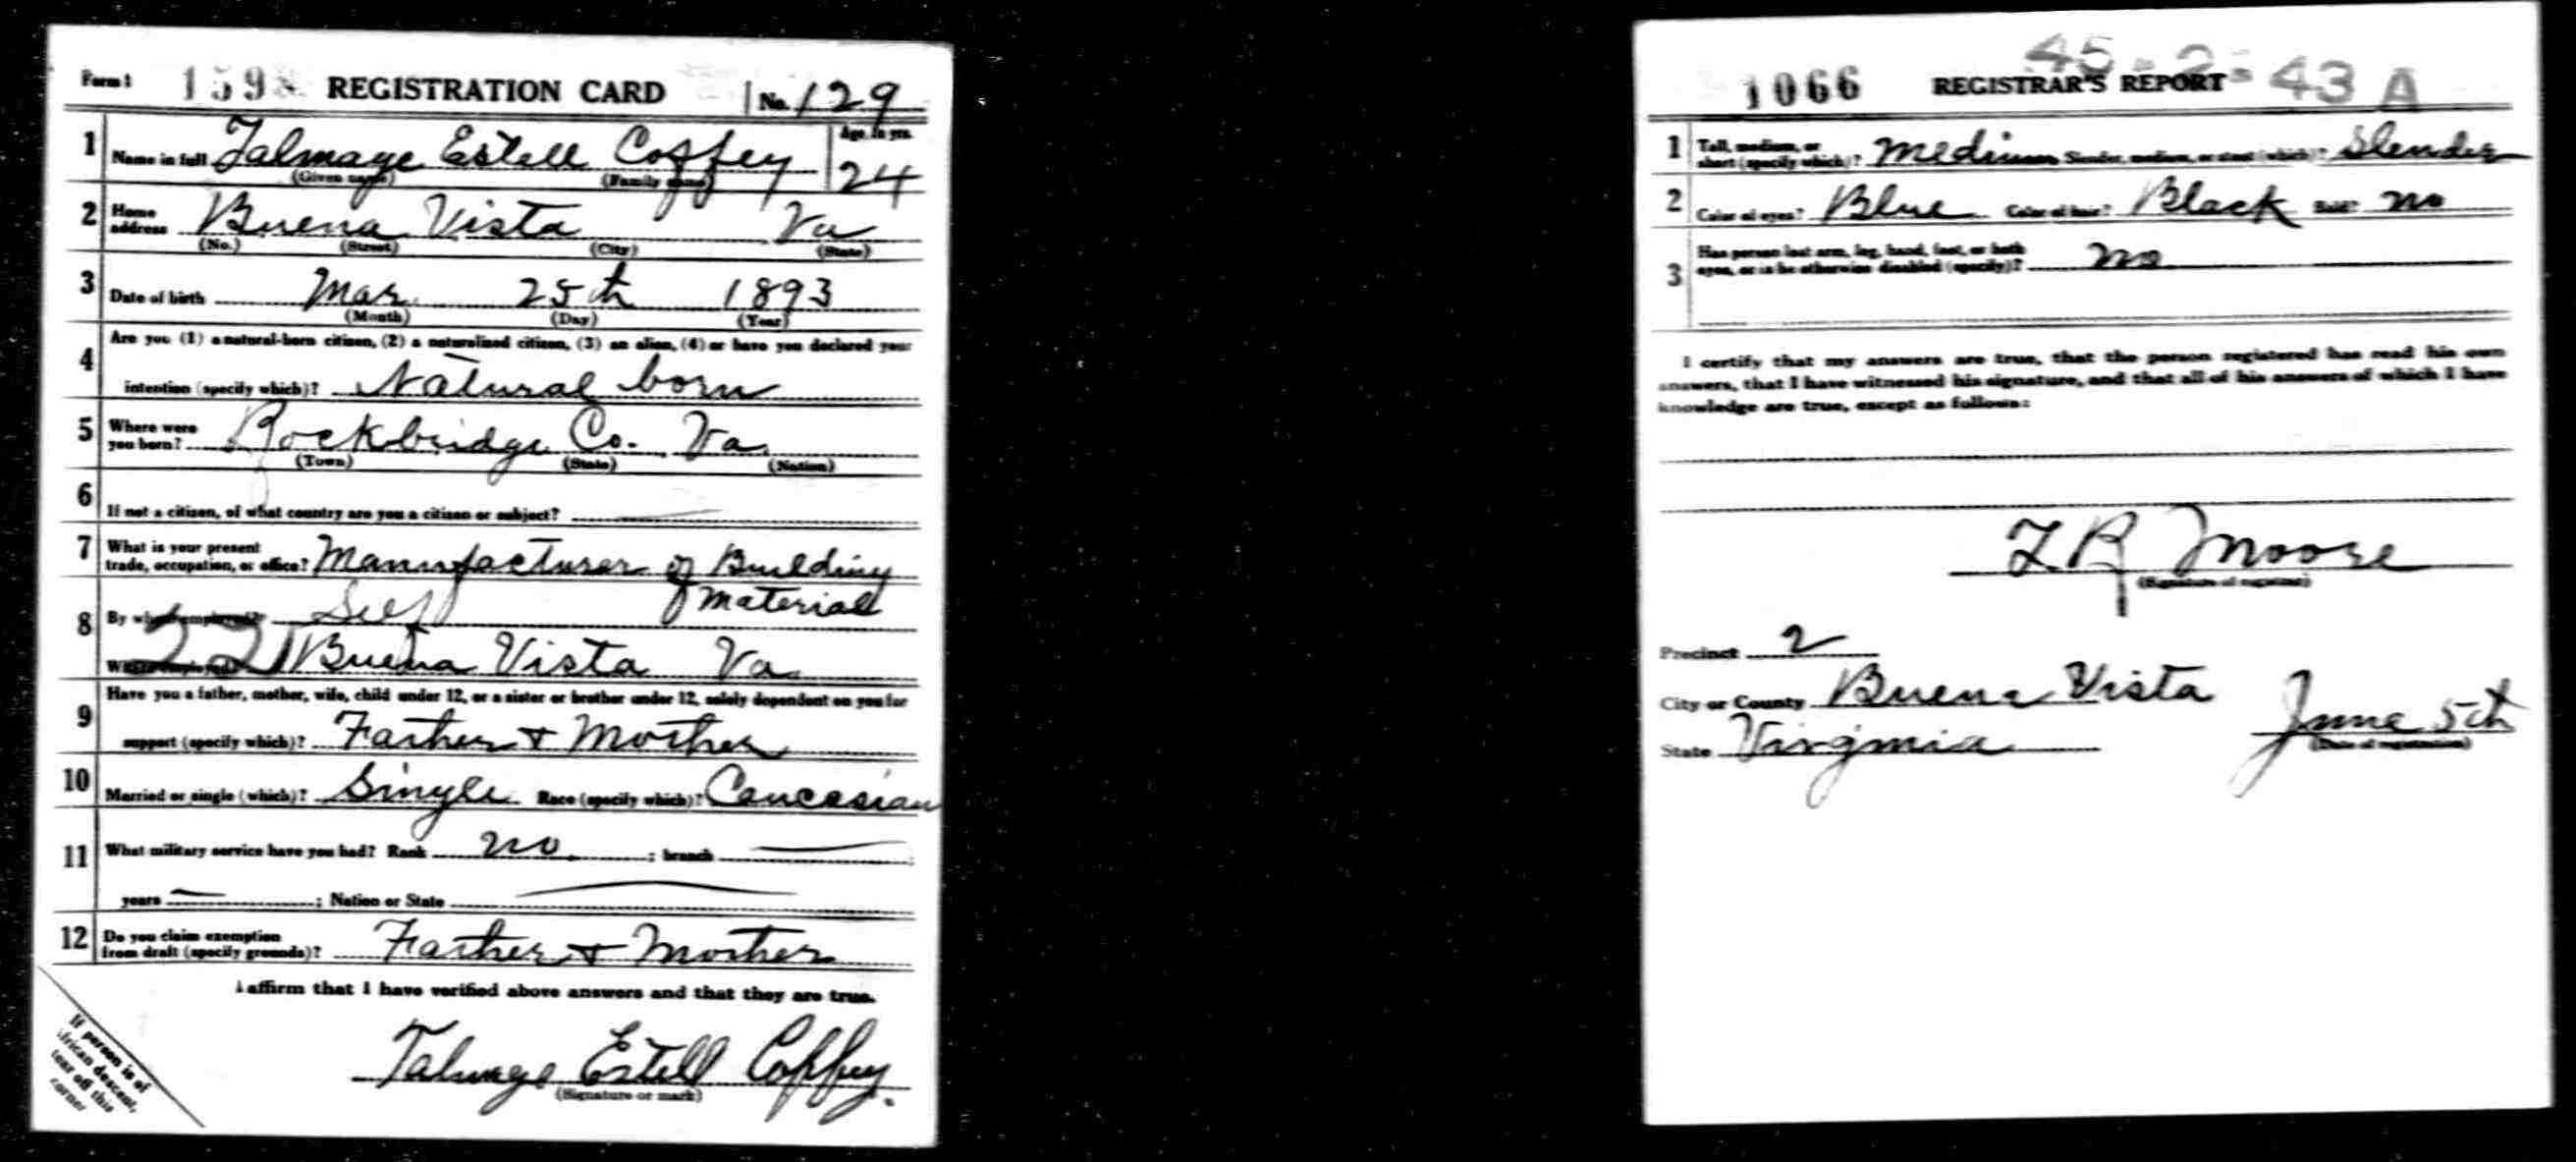 Form 1 159 REGISTRATION CARD No. 129
1 Name in full Talmage Estell Coffey Age, in yrs. 24
(Given name) (Family name)
2 Home address Buena Vista Va
(No.) (Street) (City) (State)
3 Date of birth Mar. 25th 1893
(Month) (Day) (Year)
4 Are you (1) a natural-born citizen, (2) a naturalized citizen, (3) an alien, (4) or have you declared your
intention (specify which)? Natural born
5 Where were you born? Rockbridge Co. Va
(Town) (State) (Nation)
6 If not a citizen, of what country are you a citizen or subject?
7 What is your present trade, occupation, or office? Manufacturer of Building
material
8 By whom employed? Self
Where employed? 221 Buena Vista Va
9 Have you a father, mother, wife, child under 12, or a sister or brother under 12, solely dependent on you for
support (specify which)? Farther + Mother
10 Married or single (which)? Single Race (specify which)? Caucasian
11 What military service have you had? Rank no ; branch
years ; Nation or State
12 Do you claim exemption from draft (specify grounds)? Farther + Mother
I affirm that I have verified above answers and that they are true.
Talmage Estell Coffey.
(Signature or mark)
If person is of
African descent,
tear off this
corner
45-2-43 A
1066 REGISTRAR'S REPORT
1 Tall, medium, or short (specify which)? Medium Slender, medium, or stout (which)? Slender
2 Color of eyes? Blue Color of hair? Black Bald? no
3 Has person lost arm, leg, hand, foot, or both
eyes, or is he otherwise disabled (specify)? no
I certify that my answers are true, that the person registered has read his own
answers, that I have witnessed his signature, and that all of his answers of which I have
knowledge are true, except as follows:
L R Moore
(Signature of registrar)
Precinct 2
City or County Buena Vista
State Virginia June 5th
(Date of registration)